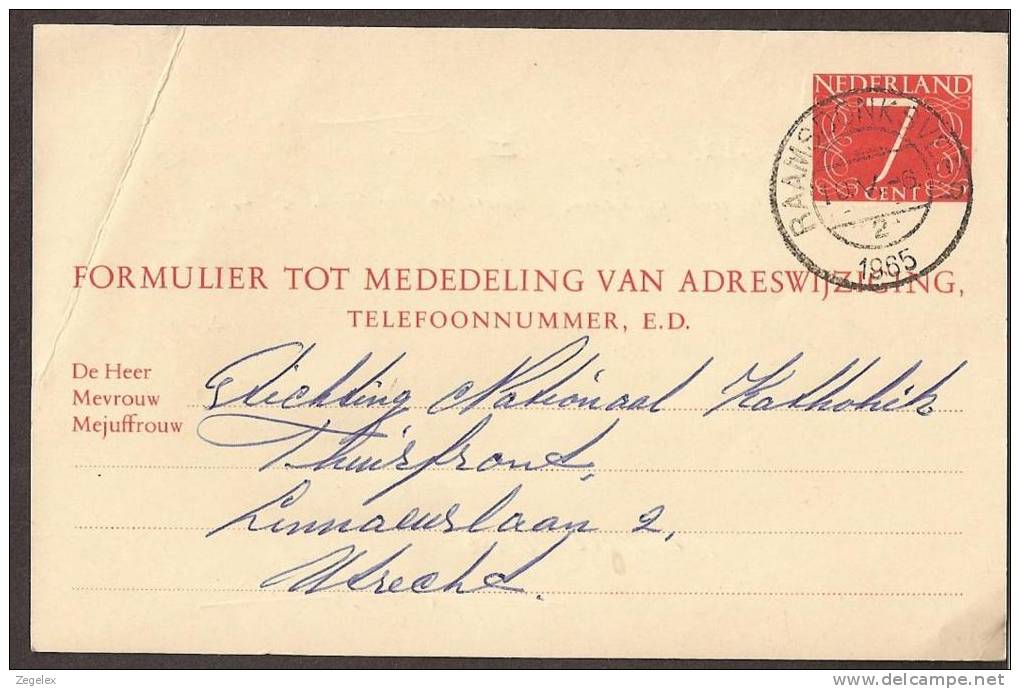 NEDERLAND
7
CENT
RAAMSDONKSVEER
2
1965
FORMULIER TOT MEDEDELING VAN ADRESWIJZIGING,
TELEFOONNUMMER, E.D.
De Heer
Mevrouw
Mejuffrouw
Stichting Nationaal Katholiek
Thuisfront,
Linnaeuslaan 2,
Utrecht.
Zegelex
delcampe.net